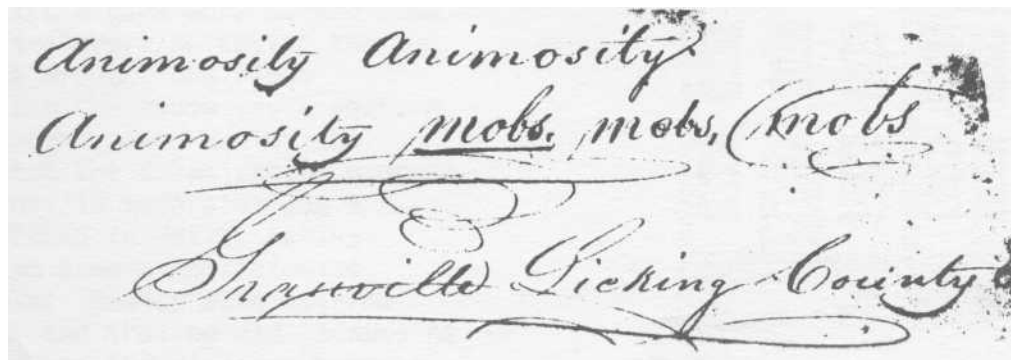 Animosity Animosity
Animosity mobs. mobs, mobs
Granville Licking County